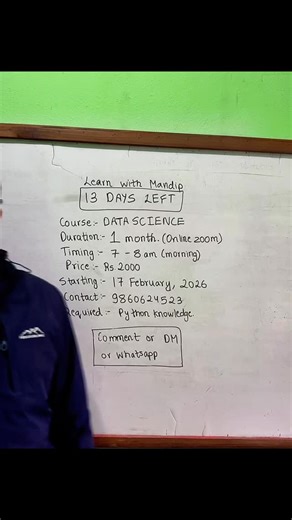 Learn with Mandip
13 DAYS LEFT
Course:- DATA SCIENCE
Duration:- 1 month. (Online zoom)
Timing :- 7 - 8 am (morning)
Price :- Rs 2000
Starting :- 17 February, 2026
Contact :- 9860624523
Required :- Python knowledge
Comment or DM
or Whatsapp